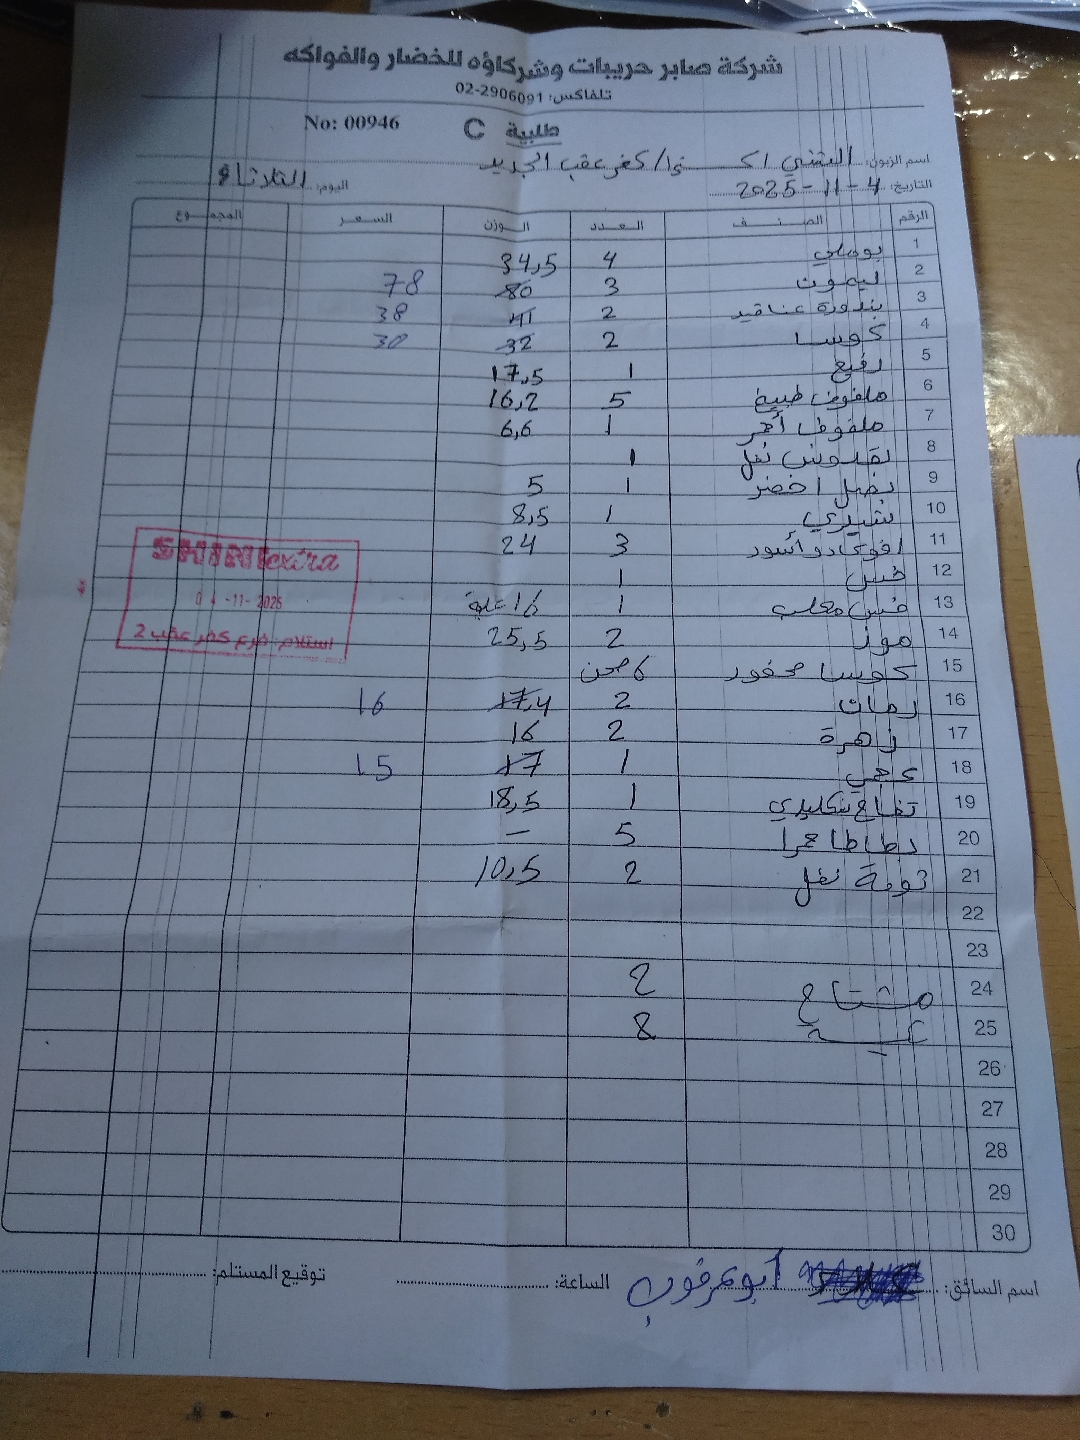 شركة صابر حريبات وشركاؤه للخضار والفواكه
تلفاكس: 02-2906091
No: 00946 طلبية C
اسم الزبون: الشني اكسترا/كفر عقب الجديد
التاريخ: 4-11-2025 اليوم: الثلاثاء
الرقم الصنف العدد الوزن السعر المجموع
1 بوملي 4 34,5
2 ليمون 3 80 78
3 بندورة عناقيد 2 41 38
4 كوسا 2 32 30
5 رفيع 1 17,5
6 ملفوف طبيخ 5 16,2
7 ملفوف أحمر 1 6,6
8 بقدونس نخل 1
9 بصل اخضر 1 5
10 شيري 1 8,5
11 افوكادو أسود 3 24
12 خس 1
13 خس معلب 1 16 علبة
14 موز 2 25,5
15 كوسا محفور 6 صحن
16 رمان 2 17,4 16
17 زهرة 2 16
18 عجي 1 17 15
19 تفاح سكليدي 1 18,5
20 بطاطا حمرا 5 –
21 ثومة نخل 2 10,5
22
23
24 مشتاح 2
25 عبية 8
26
27
28
29
30
SHINI extra
04-11-2025
استلام: فرع كفر عقب 2
اسم السائق: أبو عرقوب الساعة: توقيع المستلم: